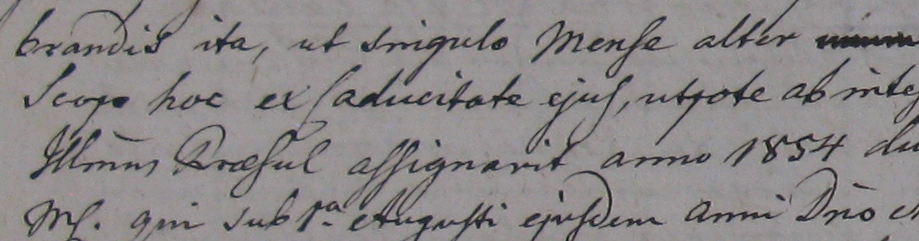 brandis ita, ut singulo Mense alter
Scopo hoc ex Caducitate ejus, utpote ab inte
Illmus Præsul assignavit anno 1854 du
Mf. qui sub 1a Augusti ejusdem anni Dno